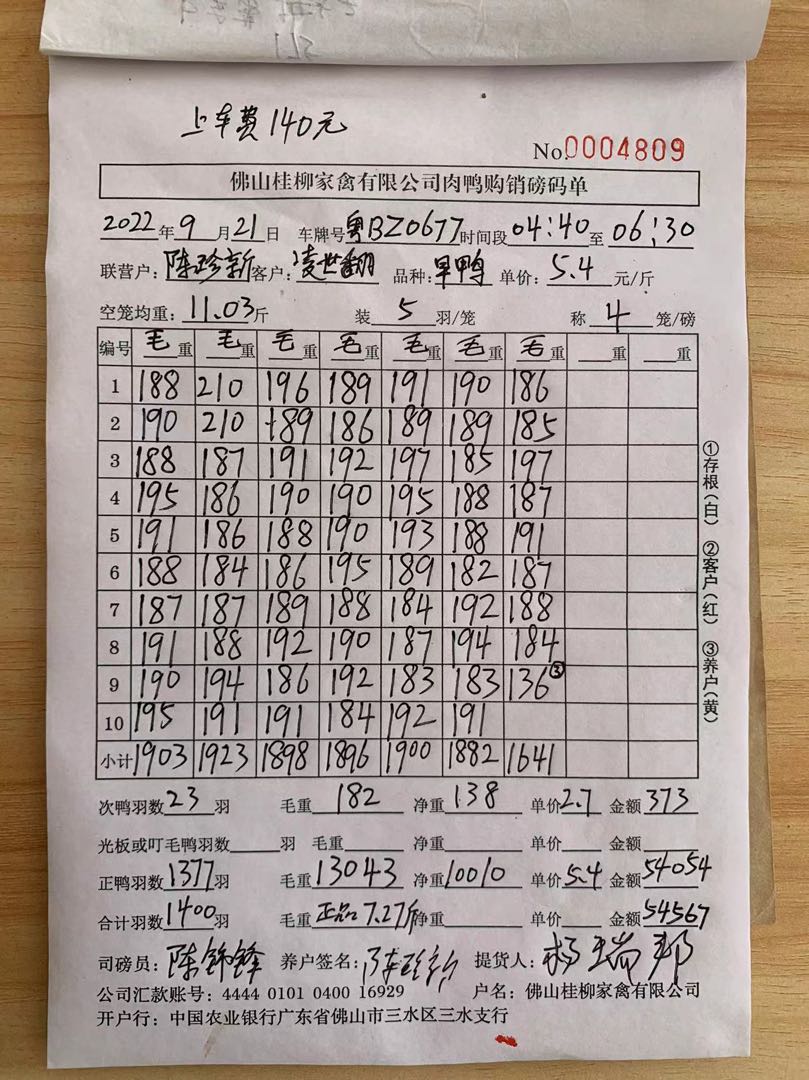 上车费140元
No.0004809
佛山桂柳家禽有限公司肉鸭购销磅码单
2022年9月21日 车牌号粤BZ0677时间段04:40至06:30
联营户:陈珍新客户:凌世翻 品种:旱鸭 单价:5.4元/斤
空笼均重:11.03斤 装5羽/笼 称4笼/磅
编号 毛重 毛重 毛重 毛重 毛重 毛重 毛重 重 重
1 188 210 196 189 191 190 186
2 190 210 189 186 189 189 185
3 188 187 191 192 197 185 197
4 195 186 190 190 195 188 187
5 191 186 188 190 193 188 191
6 188 184 186 195 189 182 187
7 187 187 189 188 184 192 188
8 191 188 192 190 187 194 184
9 190 194 186 192 183 183 136③
10 195 191 191 184 192 191
小计 1903 1923 1898 1896 1900 1882 1641
次鸭羽数23羽 毛重182 净重138 单价2.7 金额373
光板或叮毛鸭羽数 羽 毛重 净重 单价 金额
正鸭羽数1377羽 毛重13043 净重10010 单价5.4 金额54054
合计羽数1400羽 毛重正品7.27斤净重 单价 金额54567
司磅员:陈锦锋 养户签名:陈珍新 提货人:杨瑞邦
公司汇款账号:4444 0101 0400 16929 户名:佛山桂柳家禽有限公司
开户行:中国农业银行广东省佛山市三水区三水支行
①存根(白) ②客户(红) ③养户(黄)